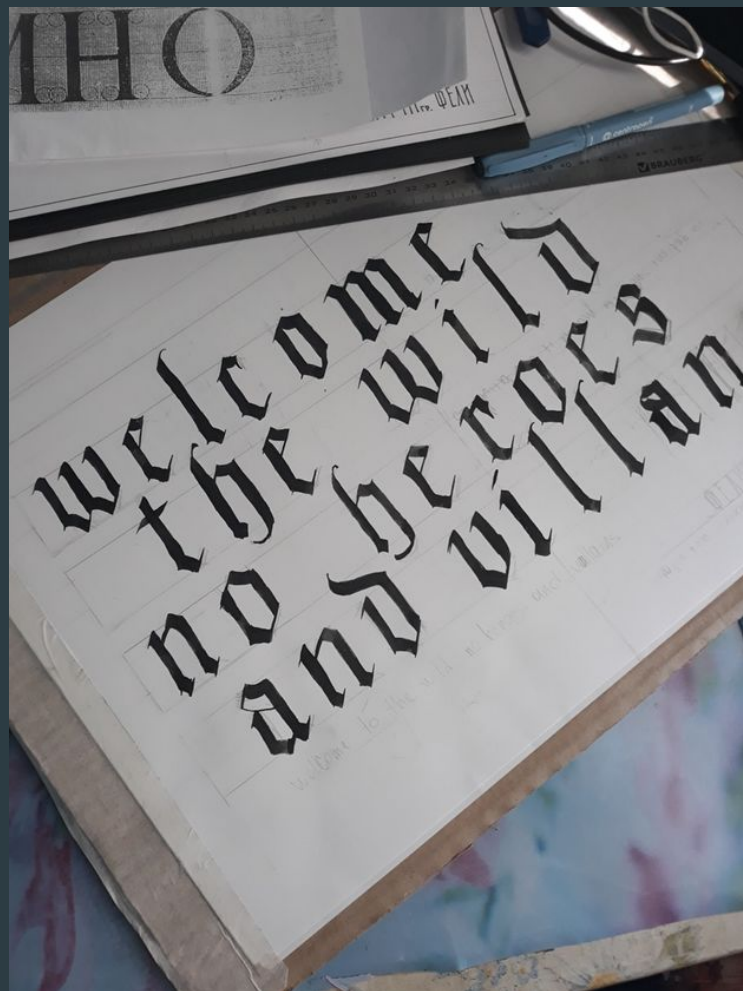 ИНО
гр. ФЕЛИ
centropen
BRAUBERG
welcome
the wild
no heroes
and villan
welcome to the wild no heroes and villans